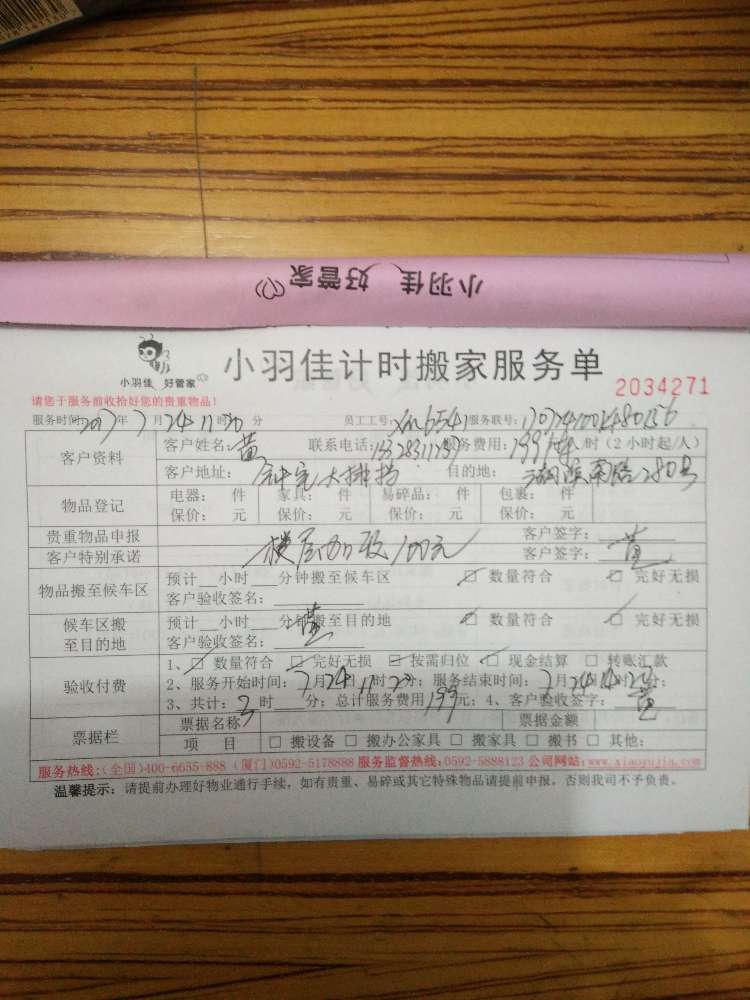 小羽佳 好管家
小羽佳 好管家
小羽佳计时搬家服务单
2034271
请您于服务前收拾好您的贵重物品!
服务时间:2017年7月24日11时30分 员工工号:xm6541 服务联号:
客户资料
客户姓名:黄 联系电话: 服务费用:199 /时(2小时起/人)
客户地址: 大排挡 目的地: 湖滨南路280号
物品登记
电器: 件 家具: 件 易碎品: 件 包裹: 件
保价: 元 保价: 元 保价: 元 保价: 元
贵重物品申报 客户签字:
客户特别承诺 楼层加收100元 客户签字:黄
物品搬至候车区
预计__小时___分钟搬至候车区 ☑ 数量符合 ☑ 完好无损
客户验收签名:
候车区搬至目的地
预计__小时___分钟搬至目的地 ☑ 数量符合 ☑ 完好无损
客户验收签名:黄
验收付费
1、☑ 数量符合 ☑ 完好无损 ☑ 按需归位 ☑ 现金结算 ☐ 转账汇款
2、服务开始时间:7月24日11时 分;服务结束时间:7月24日14时 分;
3、共计:3时 分;总计服务费用199元;4、客户验收签字:黄
票据栏
票据名称 票据金额
项 目 ☐ 搬设备 ☐ 搬办公家具 ☐ 搬家具 ☐ 搬书 ☐ 其他:
服务热线:(全国)400-6655-888 (厦门)0592-5178888 服务监督热线:0592-5888123 公司网站:www.xiaoyujia.com
温馨提示:请提前办理好物业通行手续,如有贵重、易碎或其它特殊物品请提前申报,否则我司不予负责。